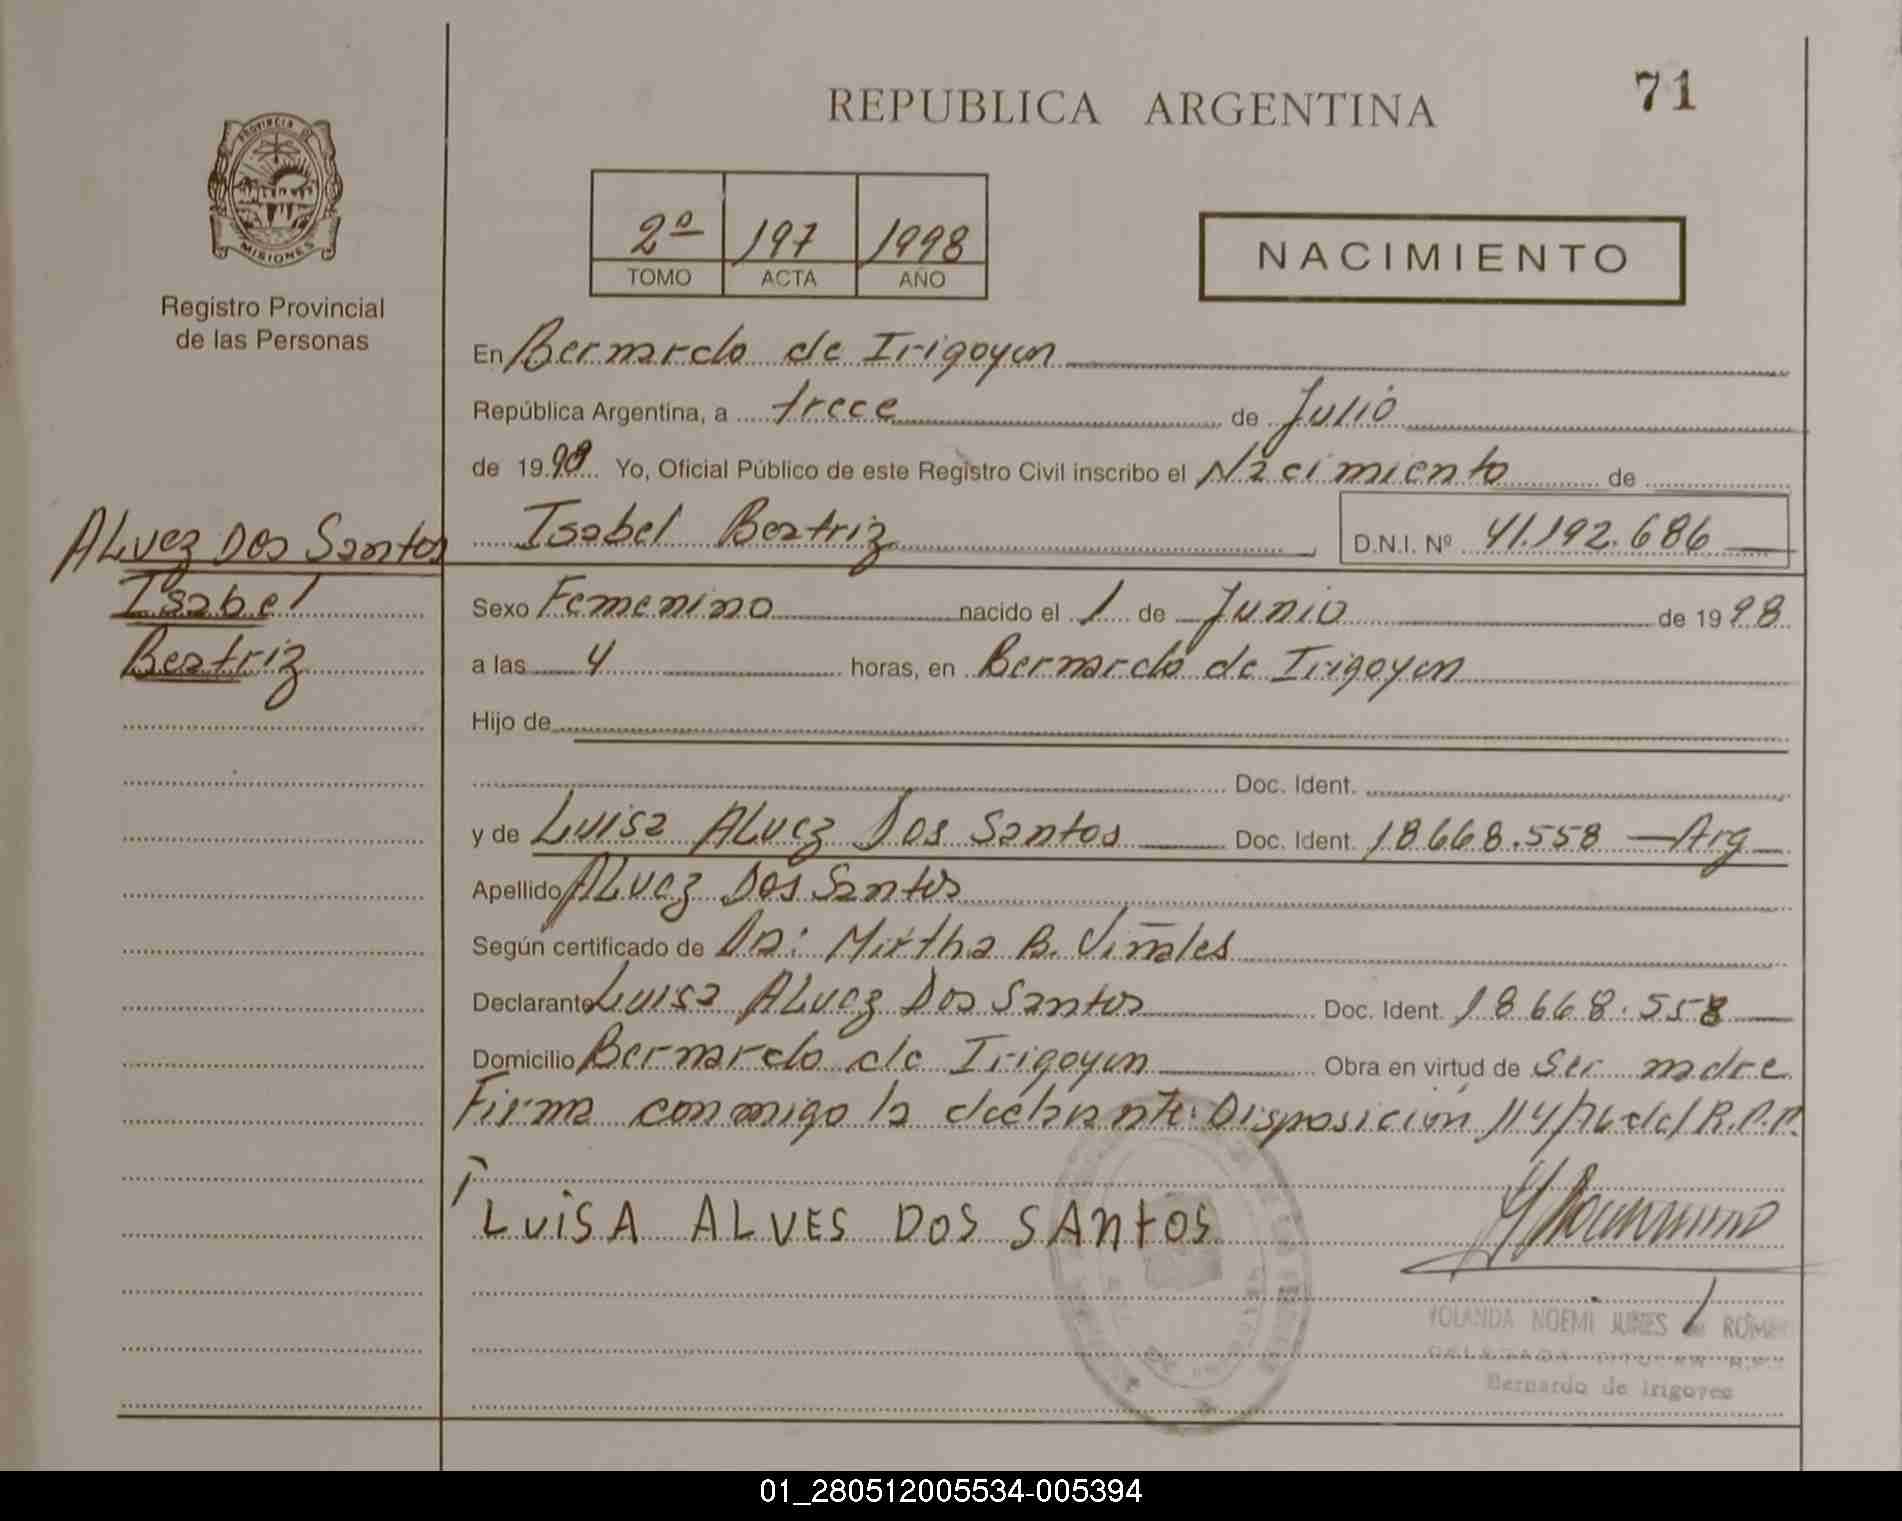 REPUBLICA ARGENTINA
71
PROVINCIA DE
MISIONES
Registro Provincial
de las Personas
2º 197 1998
TOMO ACTA AÑO
NACIMIENTO
En Bernardo de Irigoyen
República Argentina, a trece de Julio
de 1998 Yo, Oficial Público de este Registro Civil inscribo el Nacimiento de
Isabel Beatriz D.N.I. Nº 41.192.686
ALvez Dos Santos
Isabel
Beatriz
Sexo Femenino nacido el 1 de Junio de 1998
a las 4 horas, en Bernardo de Irigoyen
Hijo de
Doc. Ident.
y de Luisa ALvez Dos Santos Doc. Ident. 18668.558 - Arg
Apellido ALvez Dos Santos
Según certificado de Dra: Mirtha B. Viñales
Declarante Luisa ALvez Dos Santos Doc. Ident. 18668.558
Domicilio Bernardo de Irigoyen Obra en virtud de ser madre
Firma conmigo la declarante: Disposición 114/76 del R.P.P.
LUiSA ALVES DOS SANtOS
YOLANDA NOEMI JUNES de ROMAN
DELEGADA TITULAR R.P.P.
Bernardo de Irigoyen
01_280512005534-005394